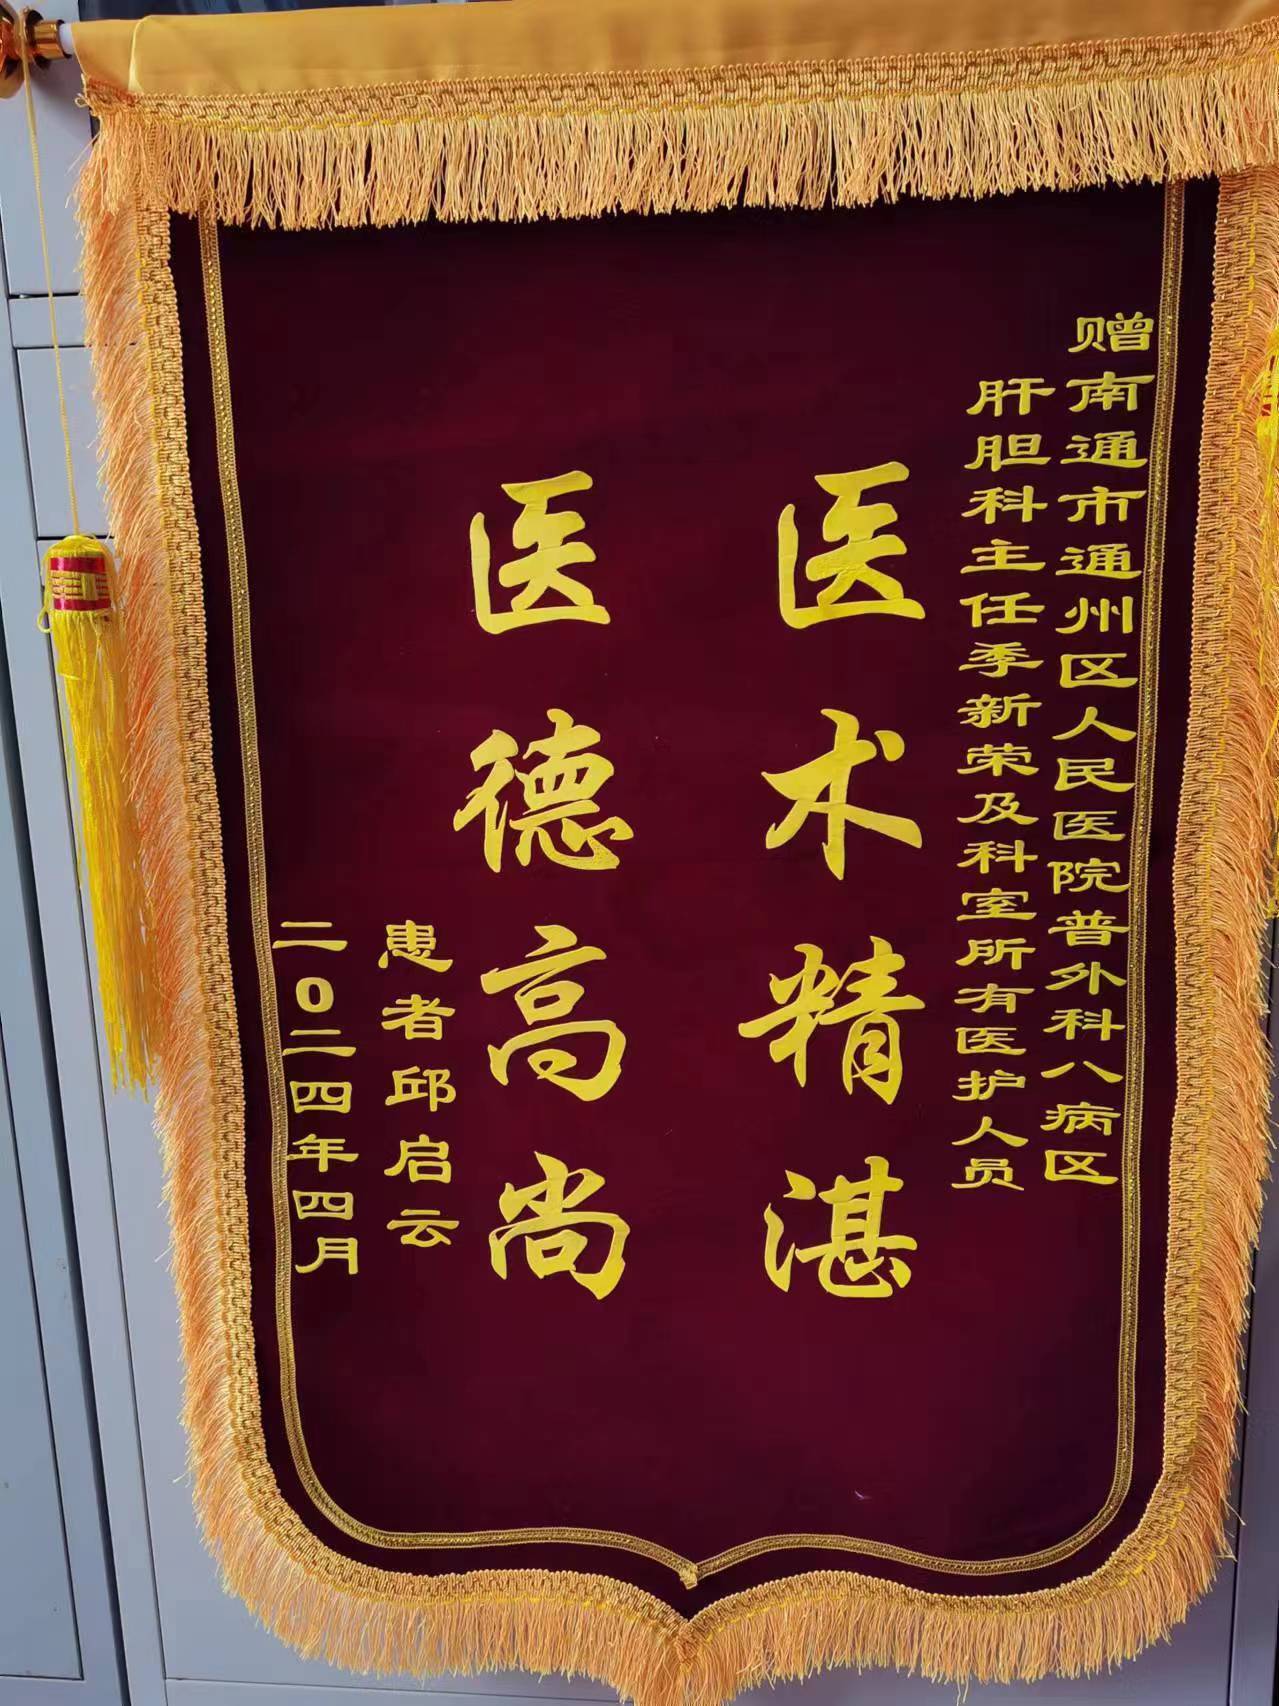 赠南通市通州区人民医院普外科八病区
肝胆科主任季新荣及科室所有医护人员
医术精湛
医德高尚
患者邱启云
二0二四年四月